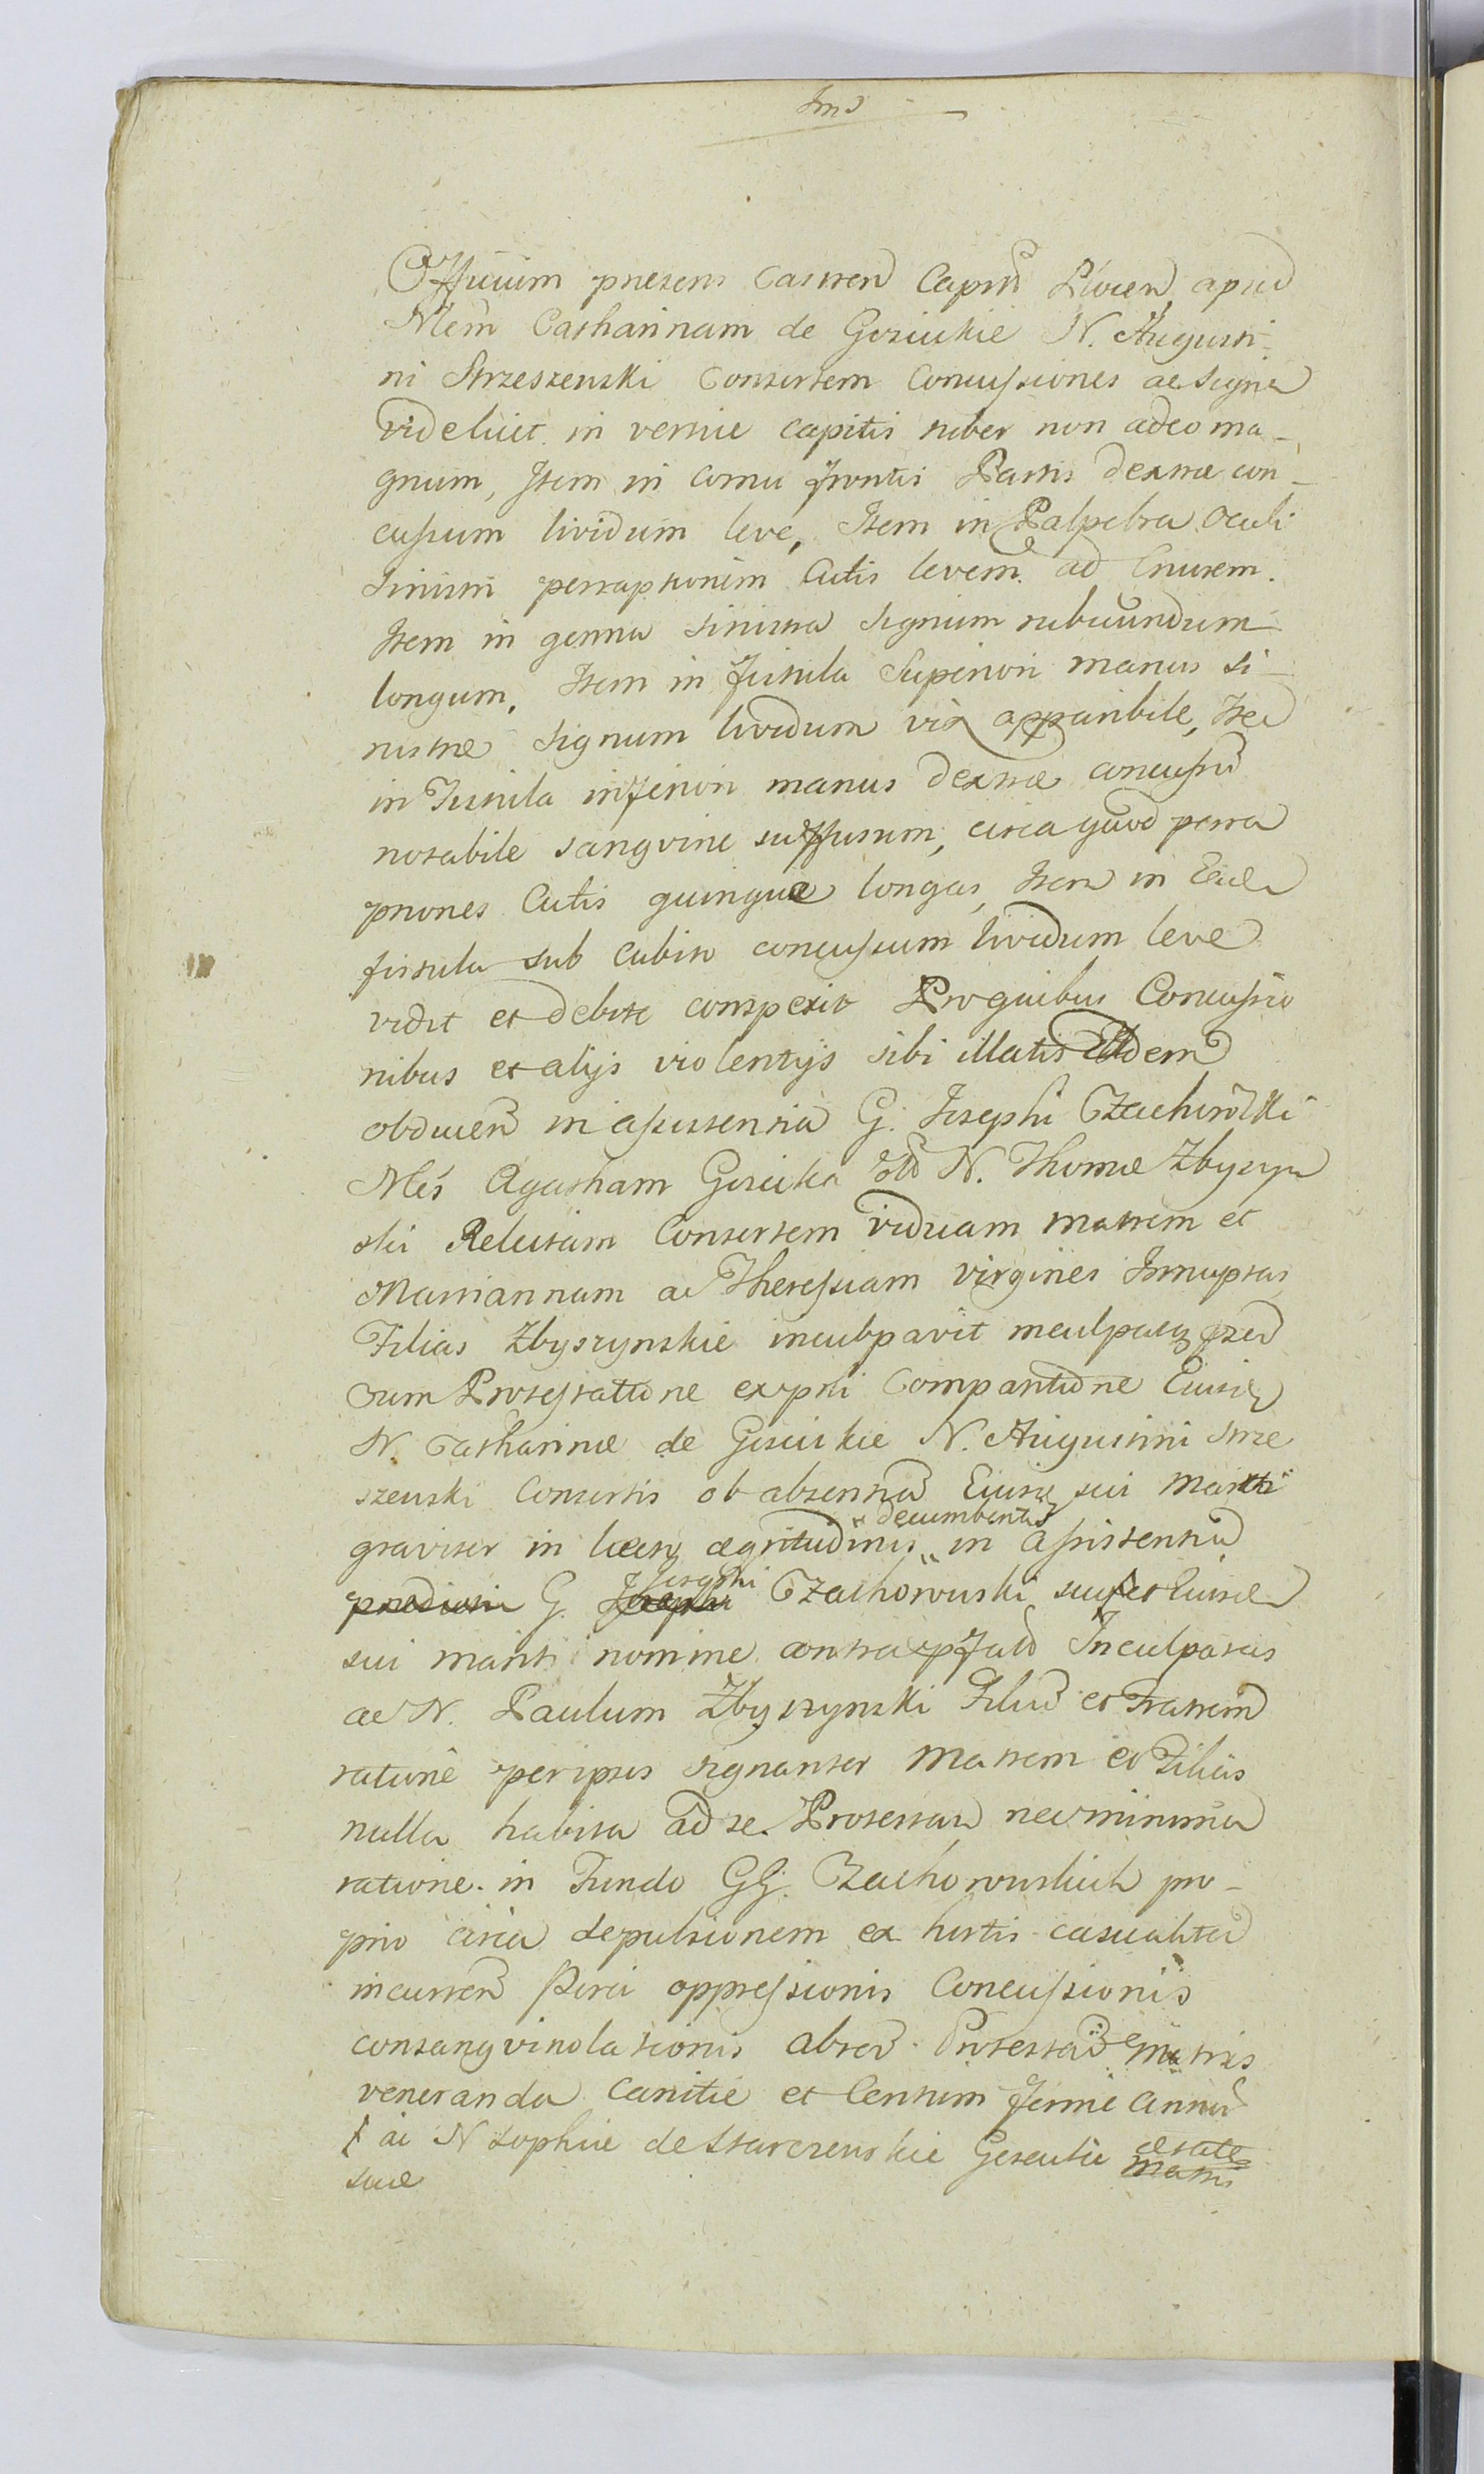 Officium præsens Castren Capitu Livien, apud
Nlem Catharinam de Goscickie N. Augusti-
ni Strzeszewski Consortem Concussiones ac signa
videlicet in vertice capitis tuber non adeo ma-
gnum, Item in cornu frontis Partis dextræ con-
cussum lividum leve, Item in Palpebra Oculi
sinistri perraptionem Cutis levem ad Cruorem.
Item in genna sinistra signum rubicundum
longum, Item in fistula Superiori manus si-
nistræ signum lividum vix apparibile, Ite
in Fistula inferiori manus dextræ concussu
notabile sangvine suffusum, circa quod perra
ptiones Cutis quinque longas, Item in Eade
fistula sub Cubito concussum lividum leve
vidit et debite conspexit Pro quibus Concussio
nibus et alijs violentijs sibi illatis Eadem
obducen in assistentia G. Josephi Czachowski
Nles Agatham Gosicka olb N. Thomæ Zbyszyn
ski Relictam Consortem viduam matrem et
Mariannam ac Theressiam virgines Innuptas
Filias Zbyszynskie inculpavit
cum Protestatione ex parti Comparitione Eiusd
N. Catharinæ de Goscickie N. Augustini Strze
szewski Consortis ob absentia Eiusd sui Mariti
graviter in lecto ægritudinis " decumbentis " in Assistentia
prædicti G. Josephi Josephi Czachorowski suo et Eiusde
sui mariti nomine contra præfatas Inculpatas
ac N. Paulum Zbyszynski Filiu et Fratrem
ratione per ipsos signanter Matrem et Filias
nulla habita ad se Protestan nec minima
ratione in Fundo GG. Czachorowskich pro-
prio circa depulsionem ex hortis casualiter
incurren Porci oppressionis Concussionis
consangvinolationis
veneranda Canitie et Centum ferme Annor
ac N Sophiæ de Starczewskie Goscickie ætate matris
suæ